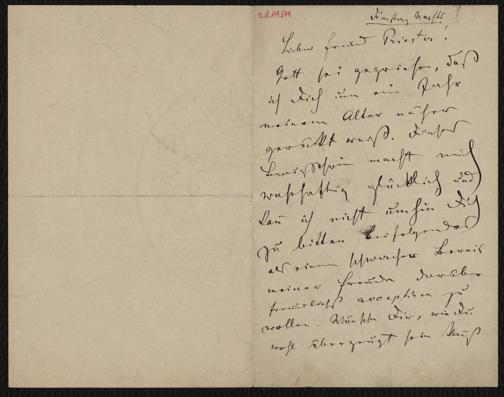 Dienstag Nachts
Lieber Freund Priester!
Gott sei gepriesen, daß
ich Dich um ein Jahr
meinem Alter näher
gerückt weiß. Dieses
Bewußtsein macht mich
wahrhaftig glücklich und
kan ich nicht umhin Dich
zu bitten beifolgendes
als einen schwachen Beweis
meiner Freunde darüber
freundlichst acceptiren zu
wollen. Wünsche Dir, wie Du
wohl überzeugt sein mußt